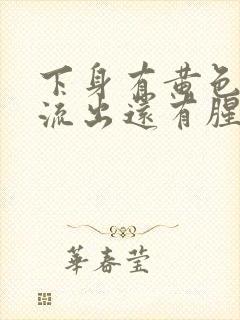 下身有黄色
流出还有腥
華春莹